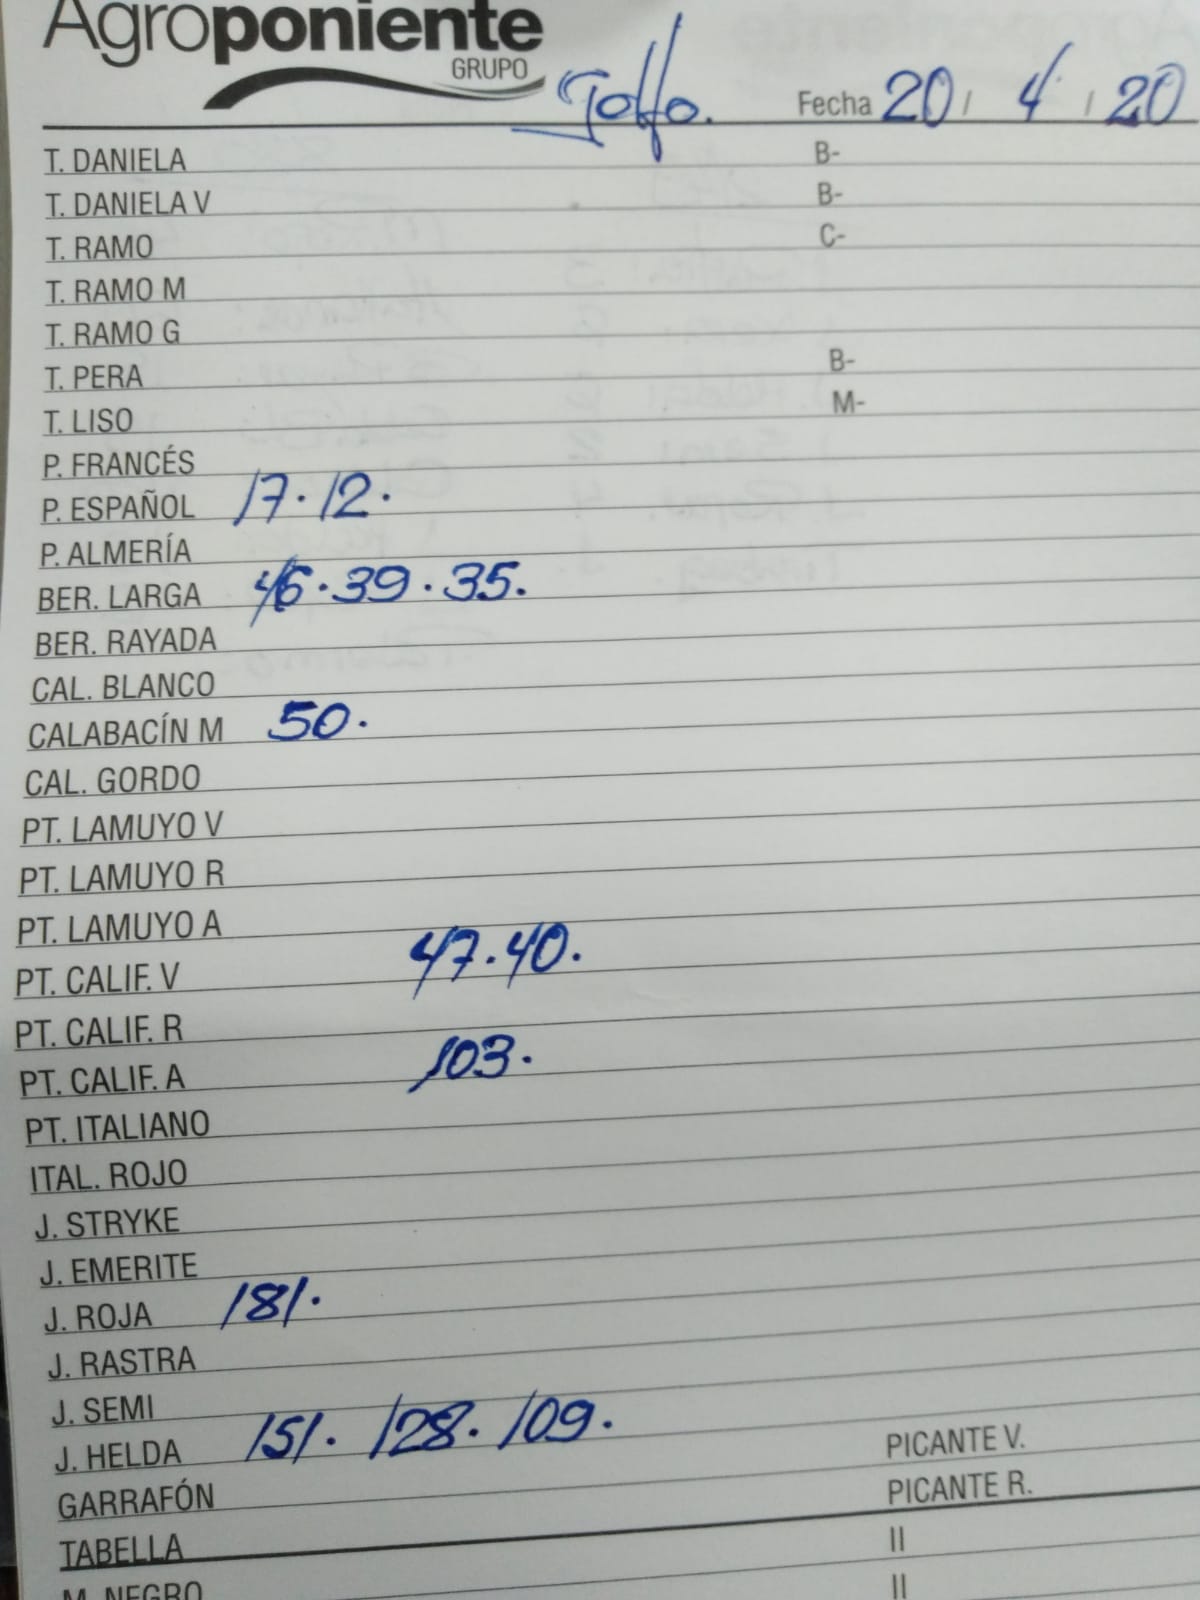 Agroponiente
GRUPO
Golfo. Fecha 20 / 4 / 20
T. DANIELA B-
T. DANIELA V B-
T. RAMO C-
T. RAMO M
T. RAMO G
T. PERA B-
T. LISO M-
P. FRANCÉS
P. ESPAÑOL 17. 12.
P. ALMERÍA
BER. LARGA 46. 39. 35.
BER. RAYADA
CAL. BLANCO
CALABACÍN M 50.
CAL. GORDO
PT. LAMUYO V
PT. LAMUYO R
PT. LAMUYO A
PT. CALIF. V 47. 40.
PT. CALIF. R
PT. CALIF. A 103.
PT. ITALIANO
ITAL. ROJO
J. STRYKE
J. EMERITE
J. ROJA 181.
J. RASTRA
J. SEMI
J. HELDA 151. 128. 109. PICANTE V.
GARRAFÓN PICANTE R.
TABELLA II
M. NEGRO II